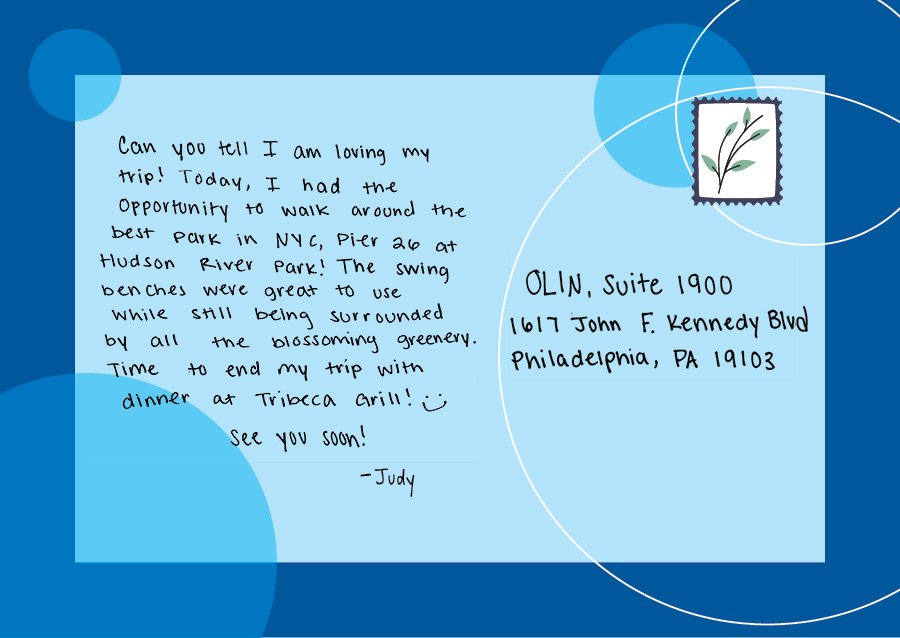 Can you tell I am loving my
trip! Today, I had the
opportunity to walk around the
best park in NYC, Pier 26 at
Hudson River Park! The swing
benches were great to use
while still being surrounded
by all the blossoming greenery.
Time to end my trip with
dinner at Tribeca Grill! :)
See you soon!
-Judy
OLIN, Suite 1900
1617 John F. Kennedy Blvd
Philadelphia, PA 19103